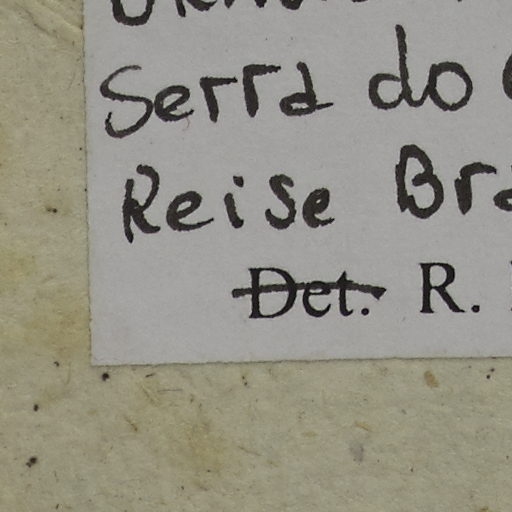 Serra do
Reise Bra
Det. R.